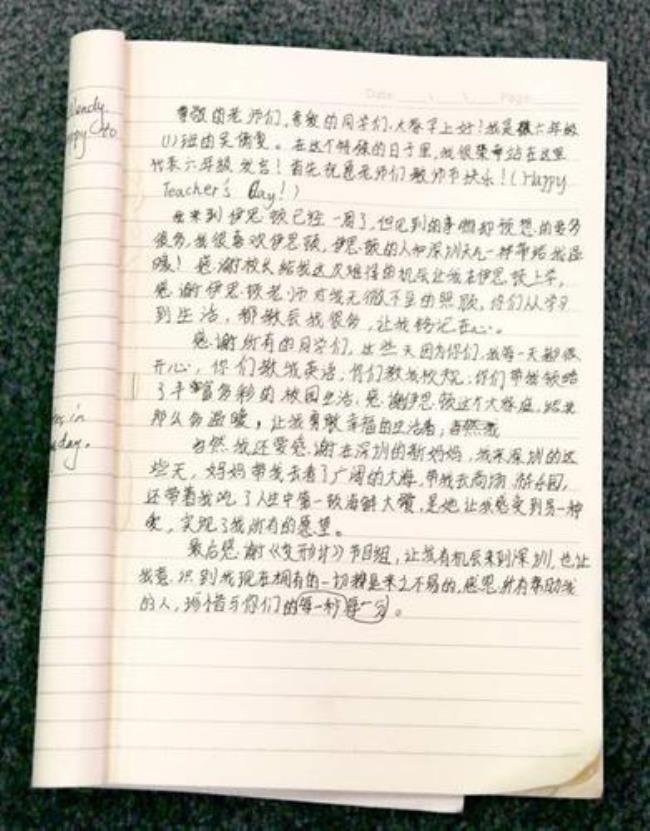 Wendy.
Date: Page:
尊敬的老师们,亲爱的同学们,大家早上好!我是六年级
(1)班的吴倩雯。在这个特殊的日子里,我很荣幸站在这里
代表六年级发言!首先祝愿老师们教师节快乐!(Happy
Teacher's Day!)
我来到伊思顿已经一周了,但见到的事物却预想的要多
很多,我很喜欢伊思顿,伊思顿的人和深圳天气一样带给我温
暖!感谢校长给我这次难得的机会让我在伊思顿上学,
感谢伊思顿老师对我无微不至的照顾,你们从学习
到生活,都教会我很多,让我铭记在心。
感谢所有的同学们,这些天因为你们,我每一天都很
开心,你们教我英语,你们教我校规,你们带我领略
了丰富多彩的校园生活。感谢伊思顿这个大家庭,给我
那么多温暖,让我勇敢幸福的生活着,当然我
当然我还要感谢在深圳的新妈妈,我来深圳的这
些天,妈妈带我去看了广阔的大海,带我去商场,游乐园,
还带着我吃了人生中第一顿海鲜大餐,是她让我感受到另一种
爱,实现了我所有的愿望。
最后感谢《变形计》节目组,让我有机会来到深圳,也让
我意识到我现在拥有的一切都是来之不易的,感恩所有帮助我
的人,珍惜与你们的每一秒每一分。
in
day.